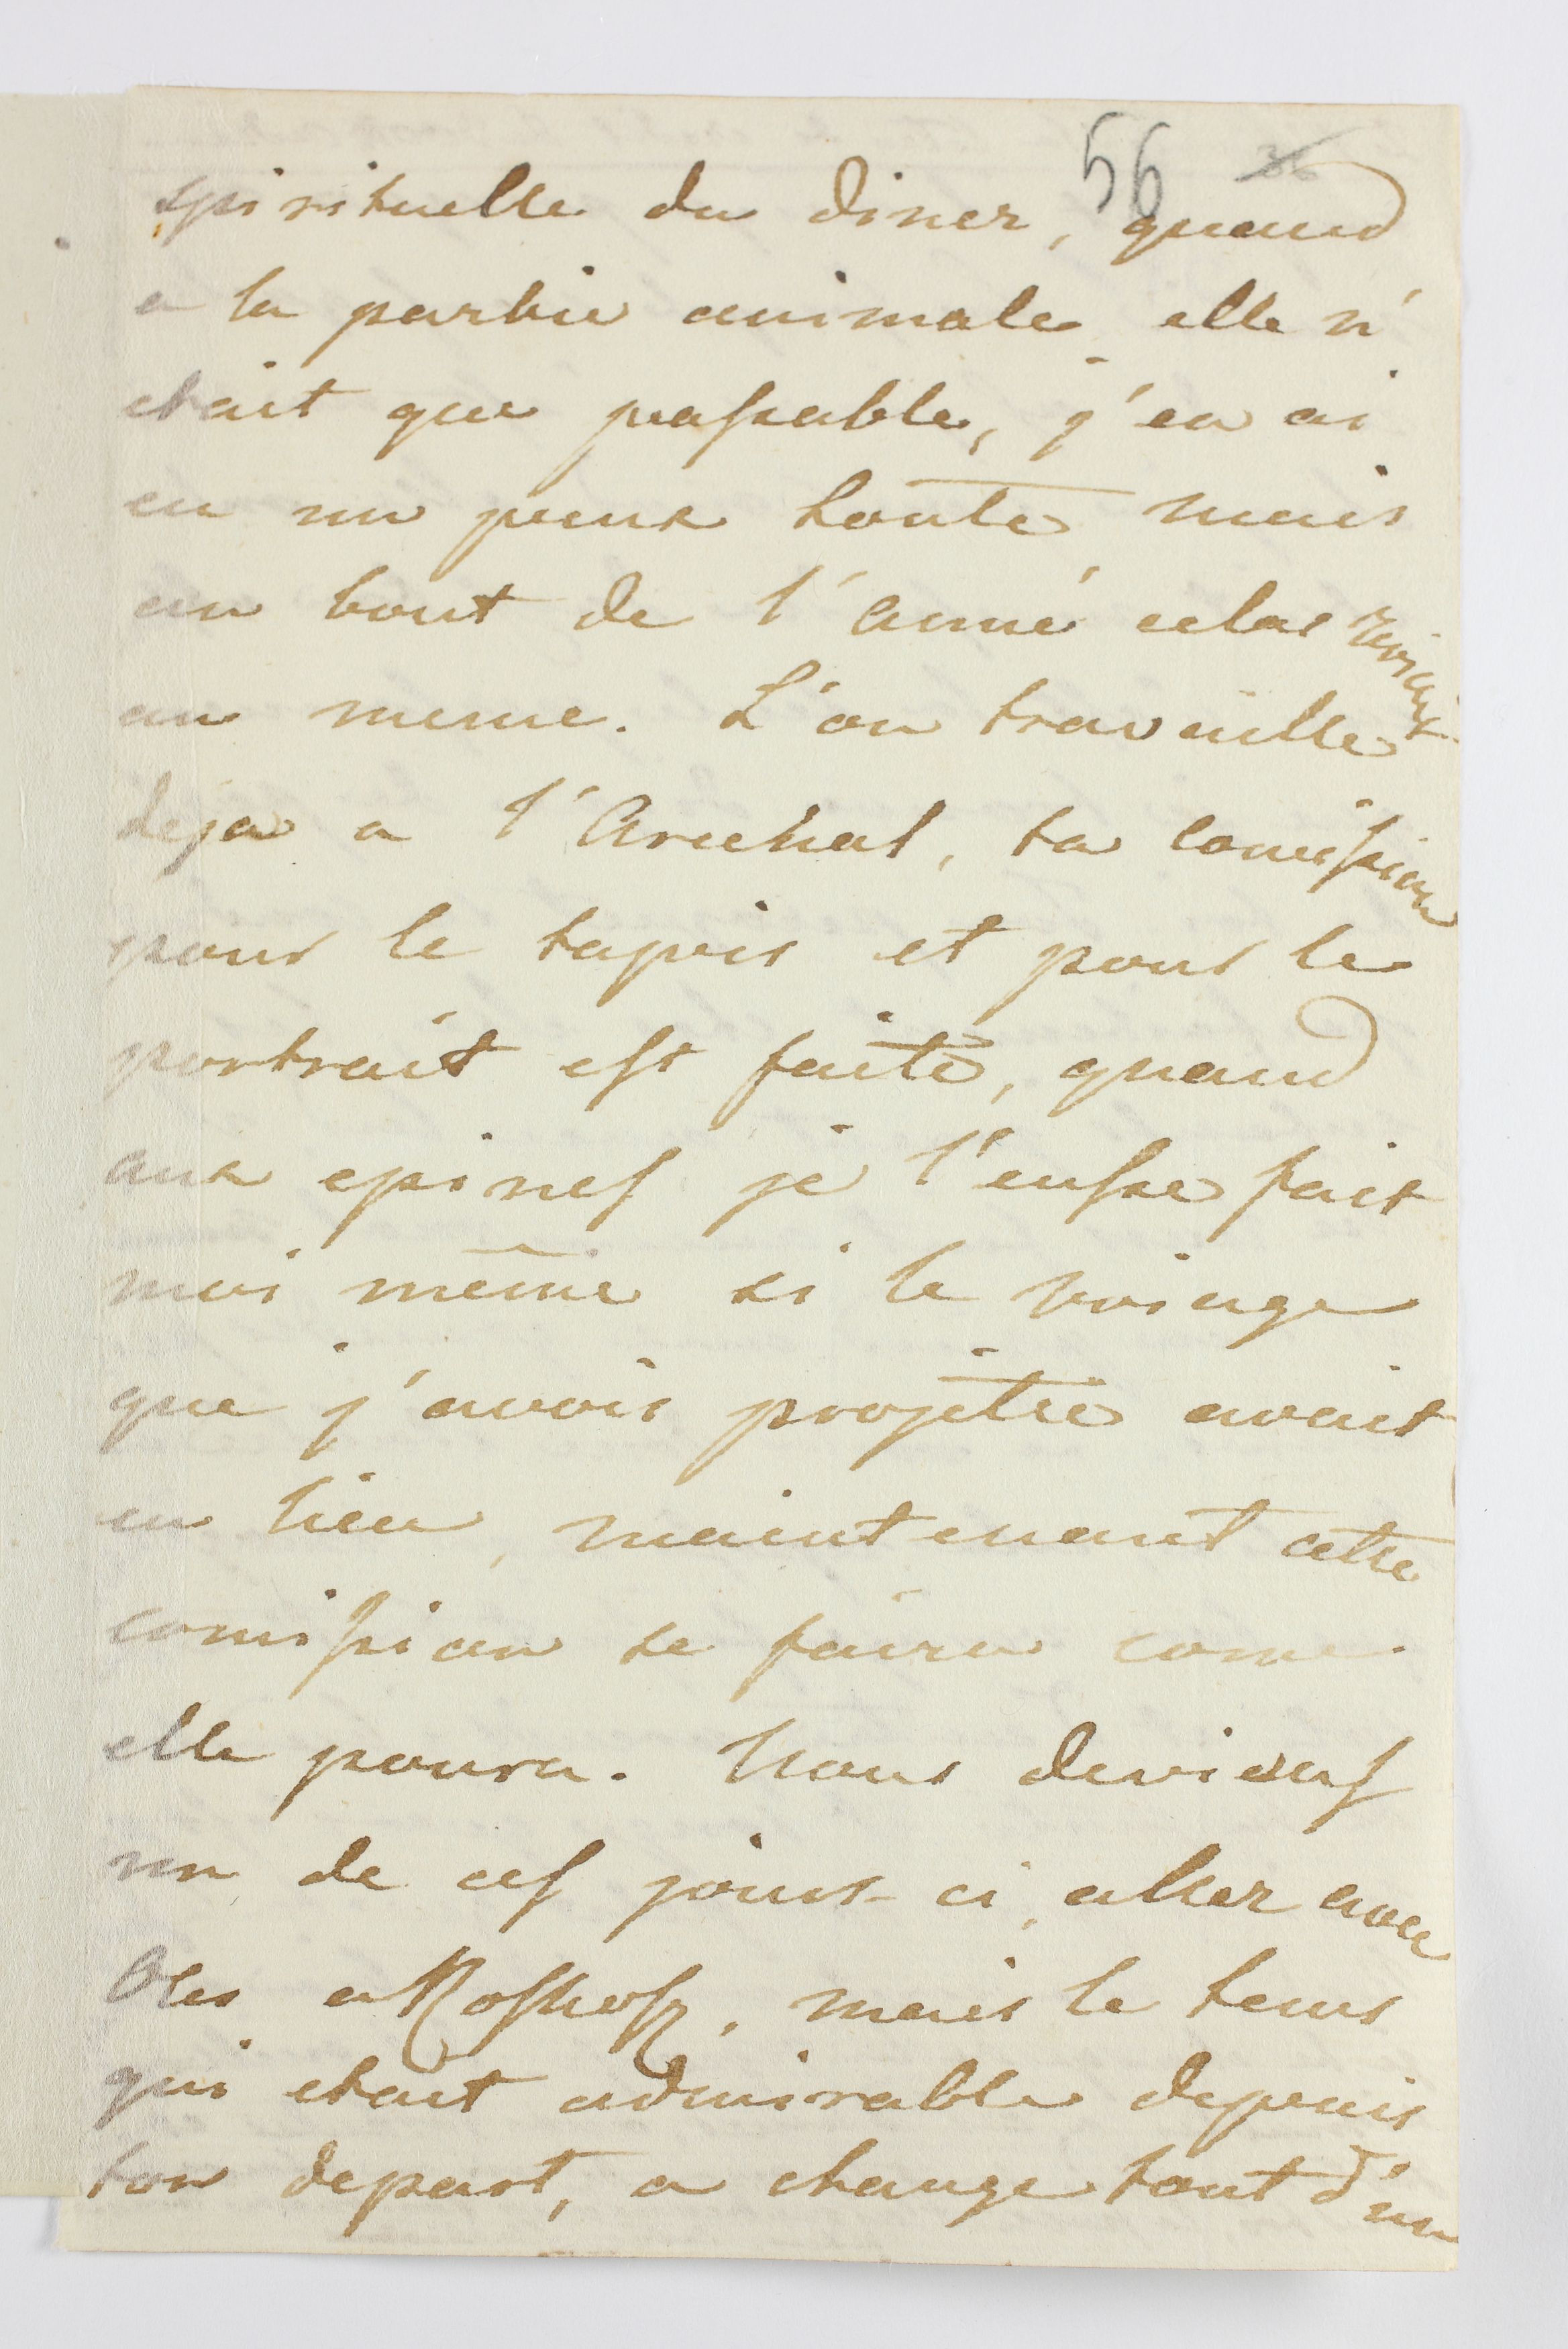 56 36
spirituelle du diner, quand
a la partie animale elle n'
etait que passable, j'en ai
eu un peux honte mais
au bout de l'anné celas revient
au meme. L'on travaille
deja a l'Arcenal, ta comission
pour le tapis et pour le
portrait est faite, quand
aux epines je l'eusse fait
moi même si le voiage
que j'avois projetté avait
eu lieu, maintenant cette
comission se faira come
elle poura. Nous devions
un de ces jours-ci, aller avec
a , mais le tems
qui etait admirable depuis
ton depart, a change tout d'un